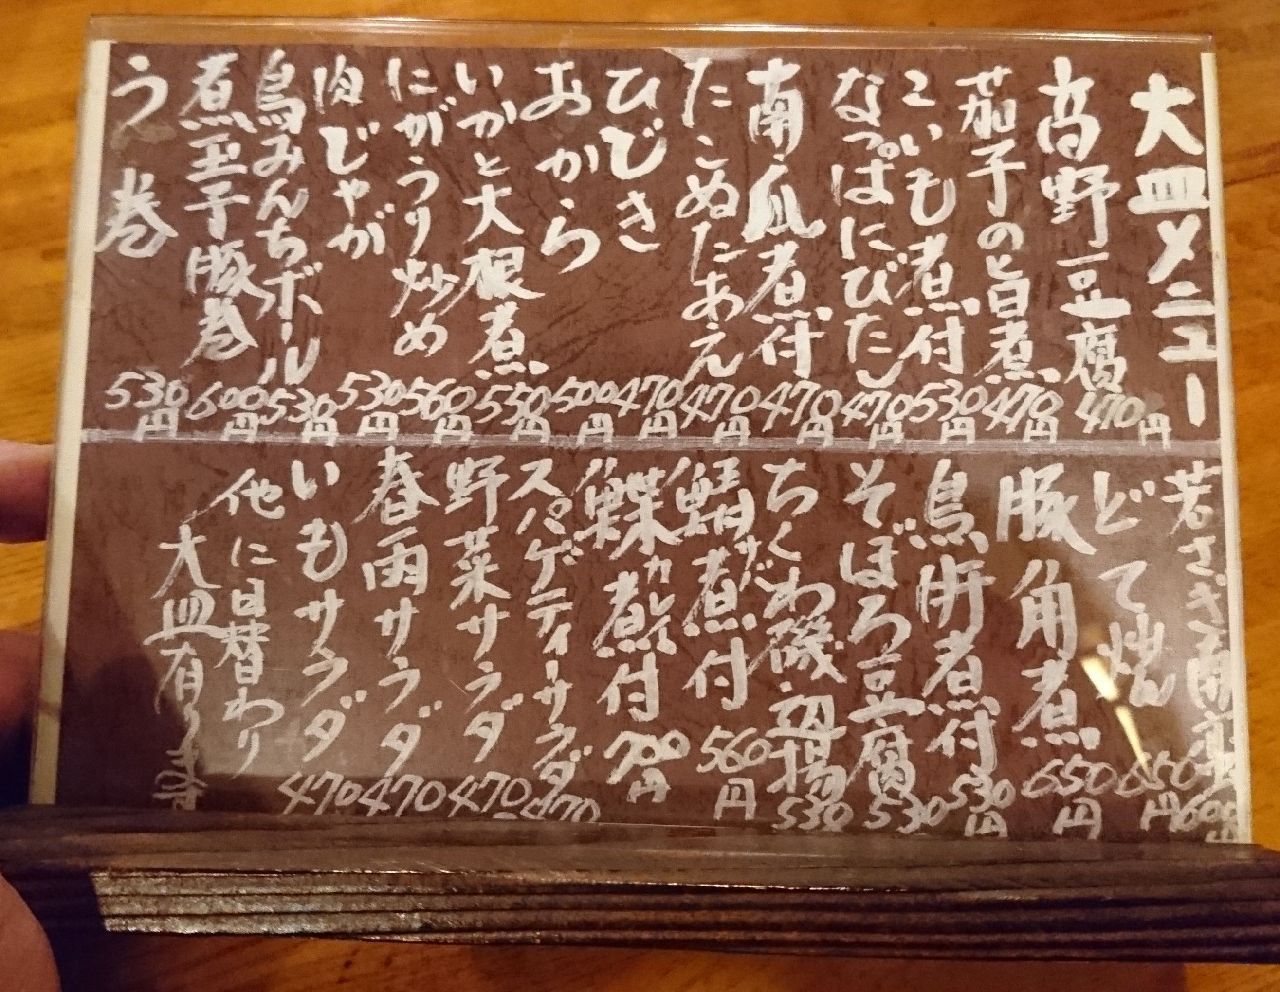 大皿メニュー
高野豆腐 470円
茄子のと旨煮 470円
こいも煮付 530円
なっぱにびたし 470円
南瓜煮付 470円
たこぬたあえ 470円
ひじき 470円
おから 500円
いかと大根煮 550円
にがうり炒め 560円
肉じゃが 530円
鳥みんちボール 530円
煮玉子豚巻 600円
う巻 530円
若さぎ南蛮 600円
どて焼 650円
豚角煮 650円
鳥肝煮付 530円
そぼろ豆腐 530
ちくわ磯辺揚 530
鯖煮付 サバ 560円
鰈煮付 カレイ 700円
スパゲティーサラダ 470
野菜サラダ 470
春雨サラダ 470
いもサラダ 470
他に日替わり
大皿有ります